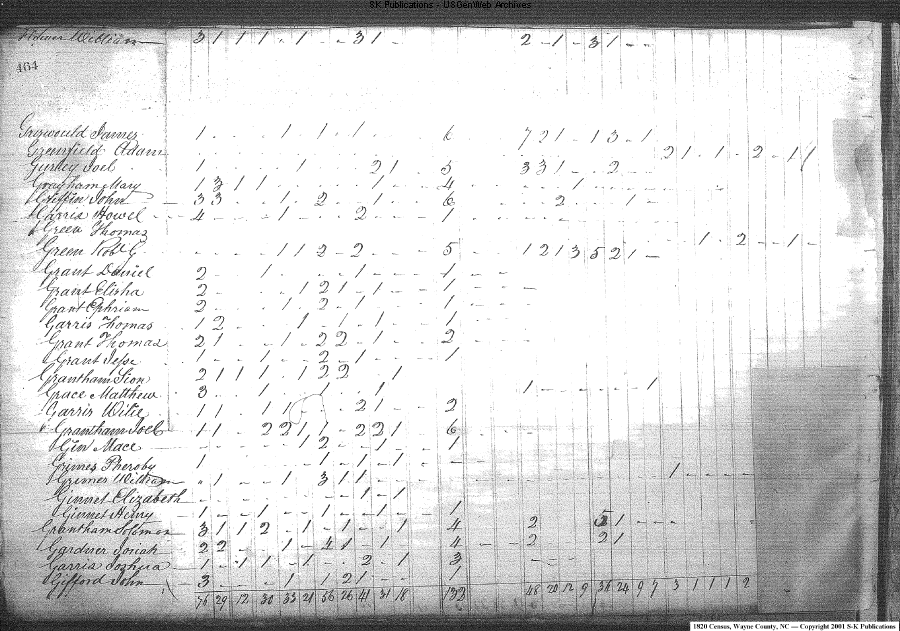 SK Publications - USGenWeb Archives
William 3 1 1 1 - 1 - - 3 1 - 2 - 1 - 3 1 - -
464
Griswould James 1 1 1 1 6 7 2 1 - 1 3 - 1
Greenfield Adam 2 1 1 - 2 - 1 1
Gurley Joel 1 1 2 1 5 3 3 1 - - 2
Grayham Mary 1 3 1 1 1 4 1
Griffin John 3 3 1 2 1 6 2 1
Garris Howel 4 1 2 1
Green Thomas
Green Robt G 1 1 2 2 5 1 2 1 3 5 2 1 1 2 1
Grant Daniel 2 1 1 1
Grant Elisha 2 1 2 1 1 1
Grant Ephriam 2 1 2 1 1
Garris Thomas 1 2 1 1 1 1
Grant Thomas 2 1 1 2 2 1 2
Grant Jesse 1 1 2 1 1
Grantham Sion 2 1 1 1 1 2 2 1
Grace Matthew 3 1 1 1 1 1
Garris Witie 1 1 1 1 2 1 2
Grantham Joel 1 1 2 2 1 1 2 2 1 6
Gin Mace 1 2 1 1
Grimes Pheroby 1 1 1 1
Grimes William 1 1 3 1 1 1
Ginnet Elizabeth 1 1
Ginnet Henry 1 1 1 1 1
Grantham Solomon 3 1 1 2 1 1 1 4 2 1
Gardner Josiah 2 2 1 4 1 1 4 2 2 1
Garris Joshua 1 1 1 1 2 1 3
Gifford John 3 1 1 2 1 1
76 29 12 30 33 21 56 26 41 31 18 133 48 20 12 9 36 24 9 7 3 1 1 1 2
1820 Census, Wayne County, NC — Copyright 2001 S-K Publications